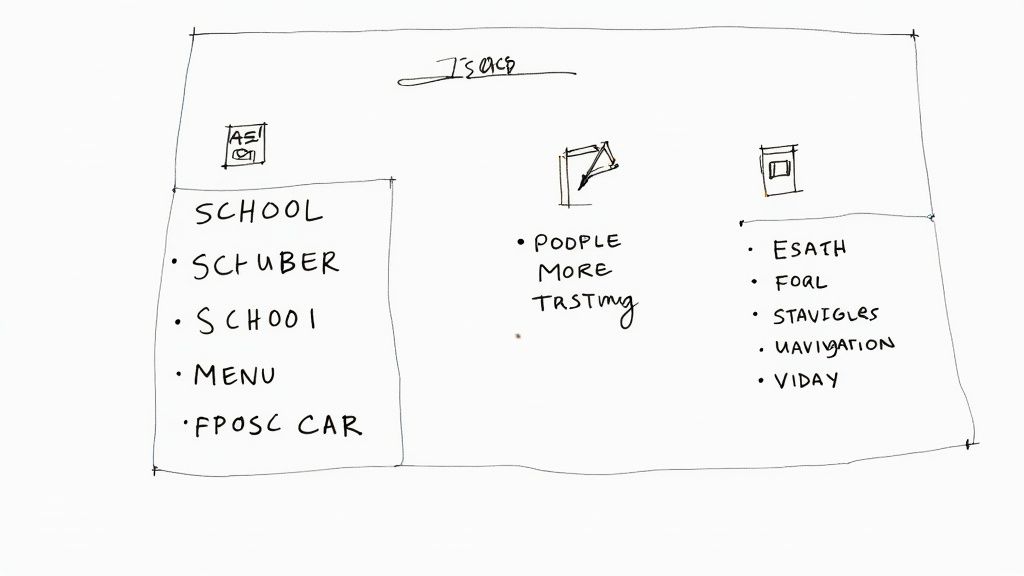 SCHOOL
• SCHUBER
• SCHOOI
• MENU
• FPOSC CAR
• POOPLE
MORE
TRSTmg
• ESATH
• FOAL
• STAVIGLES
• UAVIgATION
• VIDAY